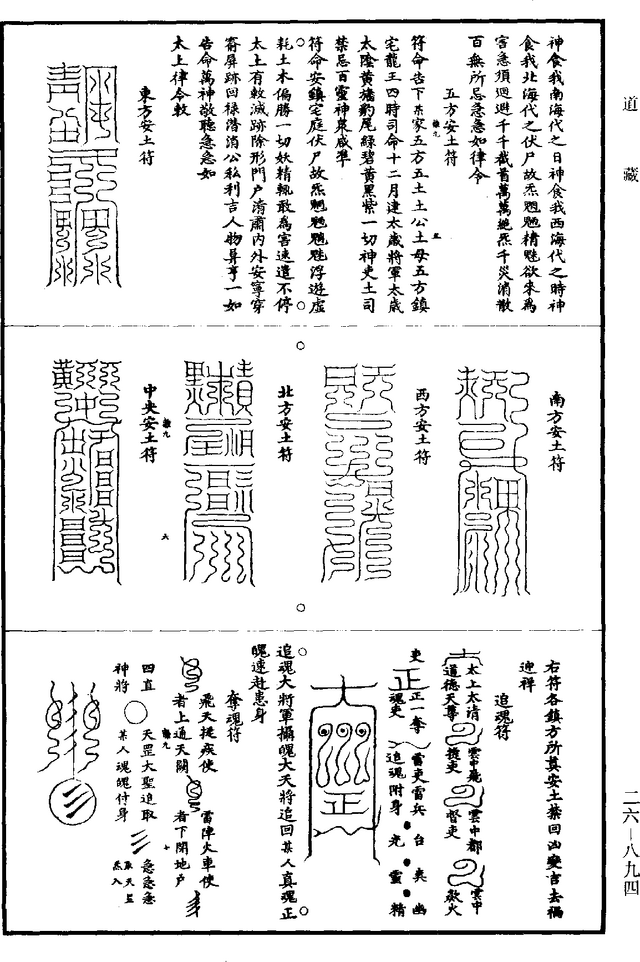 道藏
神食我南海代之日神食我西海代之時神
食我北海代之伏尸故炁魍魎精魅欲來為
害急須迴避千千截首萬萬絕炁千災消散
百無所忌急急如律令
五方安土符
符命告下某家五方五土土公土母五方鎮
宅龍王四時司命十二月建太歲將軍太歲
太陰黃旛豹尾綠碧黃黑紫一切神吏土司
禁忌百靈神眾咸準
符命安鎮宅庭伏尸故炁魍魎魑魅浮遊虛
耗土木偏勝一切妖精輒敢為害速遣不停
太上有敕滅跡除形門戶清肅內外安寧穿
窬屏跡回祿潛消公私利吉人物昇亨一如
告命萬神敬聽急急如
太上律令敕
東方安土符
南方安土符
西方安土符
北方安土符
中央安土符
右符各鎮方所其安土禁回凶變吉去禍
迎祥
追魂符
太上太清
道德天尊
雲中飛
捷吏
雲中都
督吏
雲中
歘火
吏
正一奪
魂吏
雷吏雷兵
追魂附身
台光
爽靈
幽精
追魂大將軍攝魄大天將追回某人真魂正
魄速赴患身
奪魂符
飛天捉疾使
者上通天闕
雷陣火車使
者下開地戶
四直
神將
天罡大聖追取
某人魂魄付身
急急急
二六—八九四